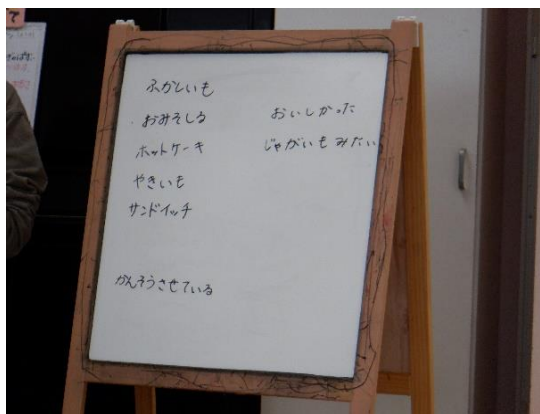 ふかしいも
おみそしる
ホットケーキ
やきいも
サンドイッチ
かんそうさせている
おいしかった
じゃがいもみたい
て